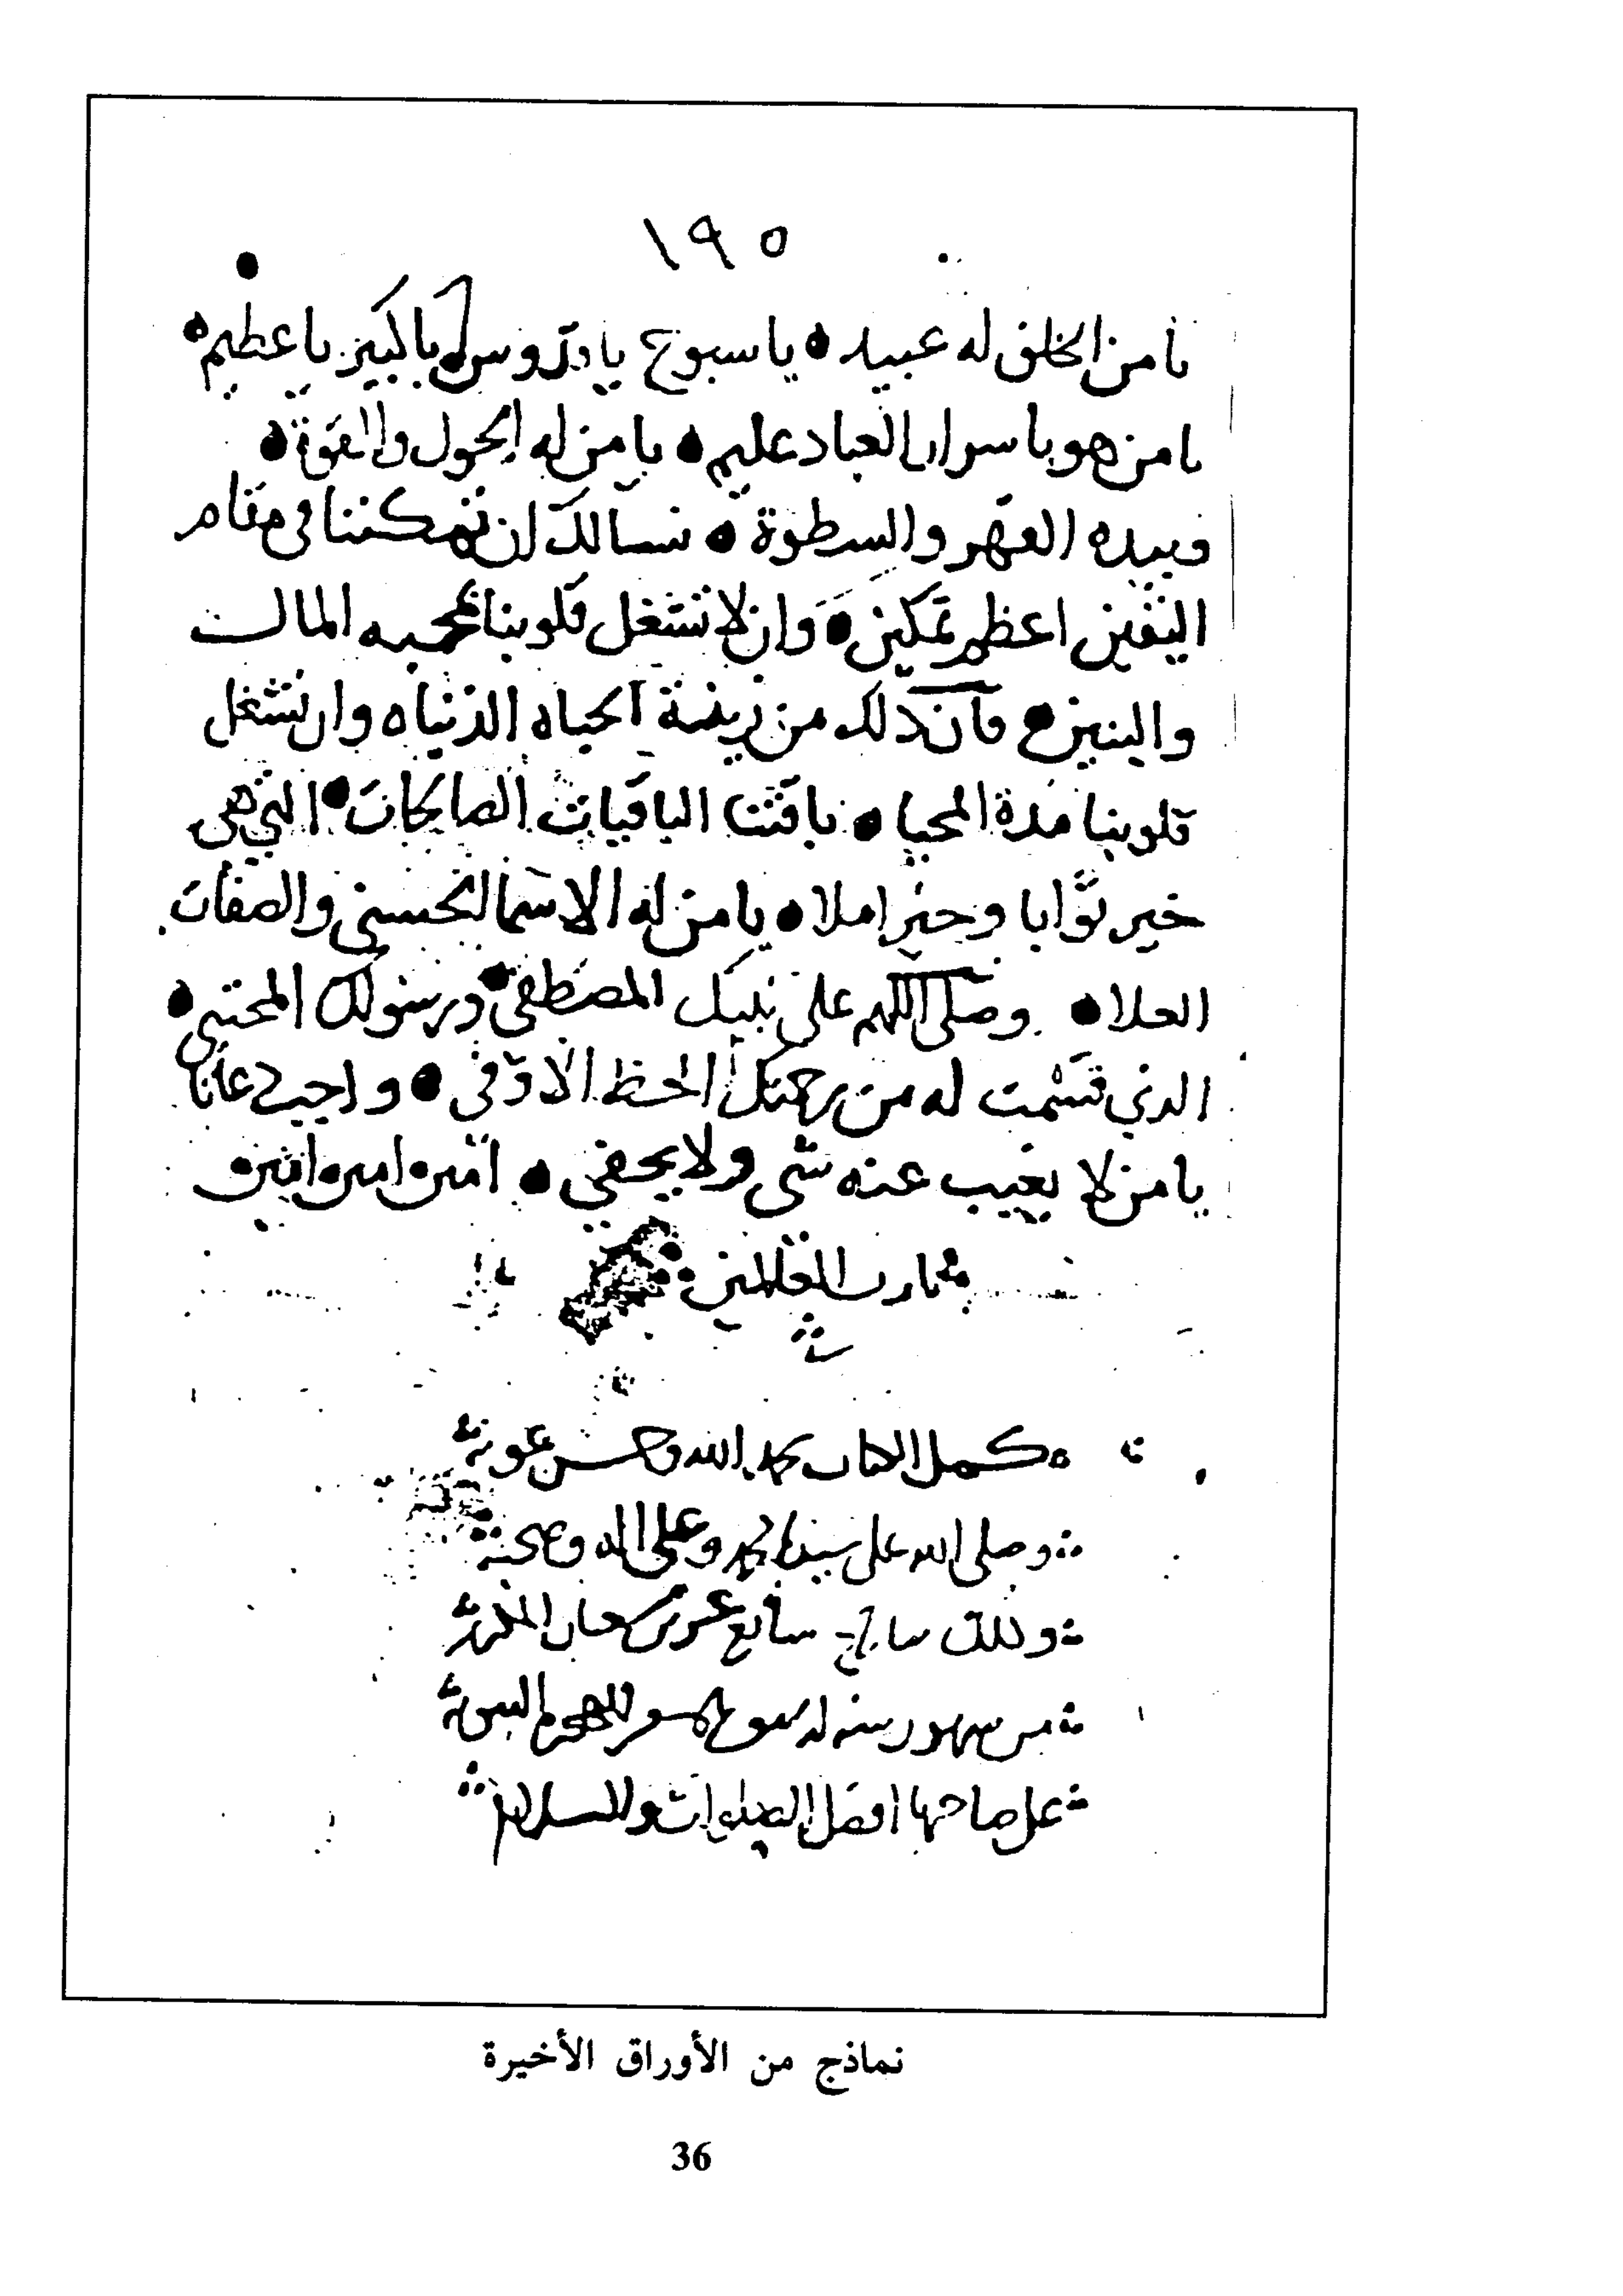 ١٩٥
يا من الخلق له عبيد ه يا سبوح يا قدوس ه يا كبير يا عظيم ه
يا من هو باسرار العباد عليم ه يا من له الحول والقوة ه
وبيده القهر والسطوة ه نسالك ان تمكننا في مقام
اليقين اعظم تمكين ه وان لا تشغل قلوبنا بمحبه المال
والبنين ه فان ذلك من زينة الحياه الدنيا ه وان تشغل
قلوبنا مدة المحيا ه الباقيات الصالحات ه التي هي
خير ثوابا وخير املا ه يا من له الاسما الحسنى والصفات
العلا ه وصلى اللهم على نبيك المصطفى ه ورسولك المجتبى ه
الذي قسمت له من رحمتك الحظ الاوفى ه واجب دعانا
يا من لا يغيب عنه شي ولا يخفى ه امين امين امين
يا رب العالمين
ه كمل الكتاب بحمد الله وحسن عونه
وصلى الله على سيدنا محمد وعلى اله وصحبه
وذلك بتاريخ سابع عشر شعبان المكرم
من شهور سنه للهجرة النبويه
على صاحبها افضل الصلوات والسلام
نماذج من الأوراق الأخيرة
36